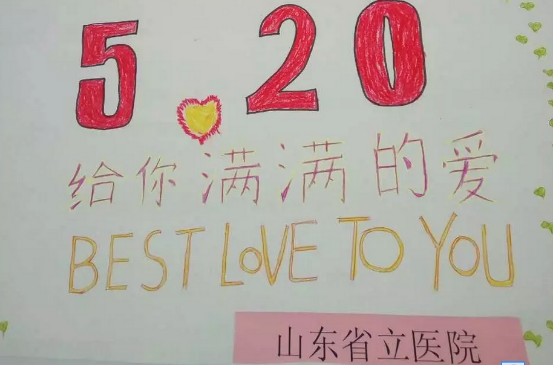 5.20
给你满满的爱
BEST LOVE TO YOU
山东省立医院